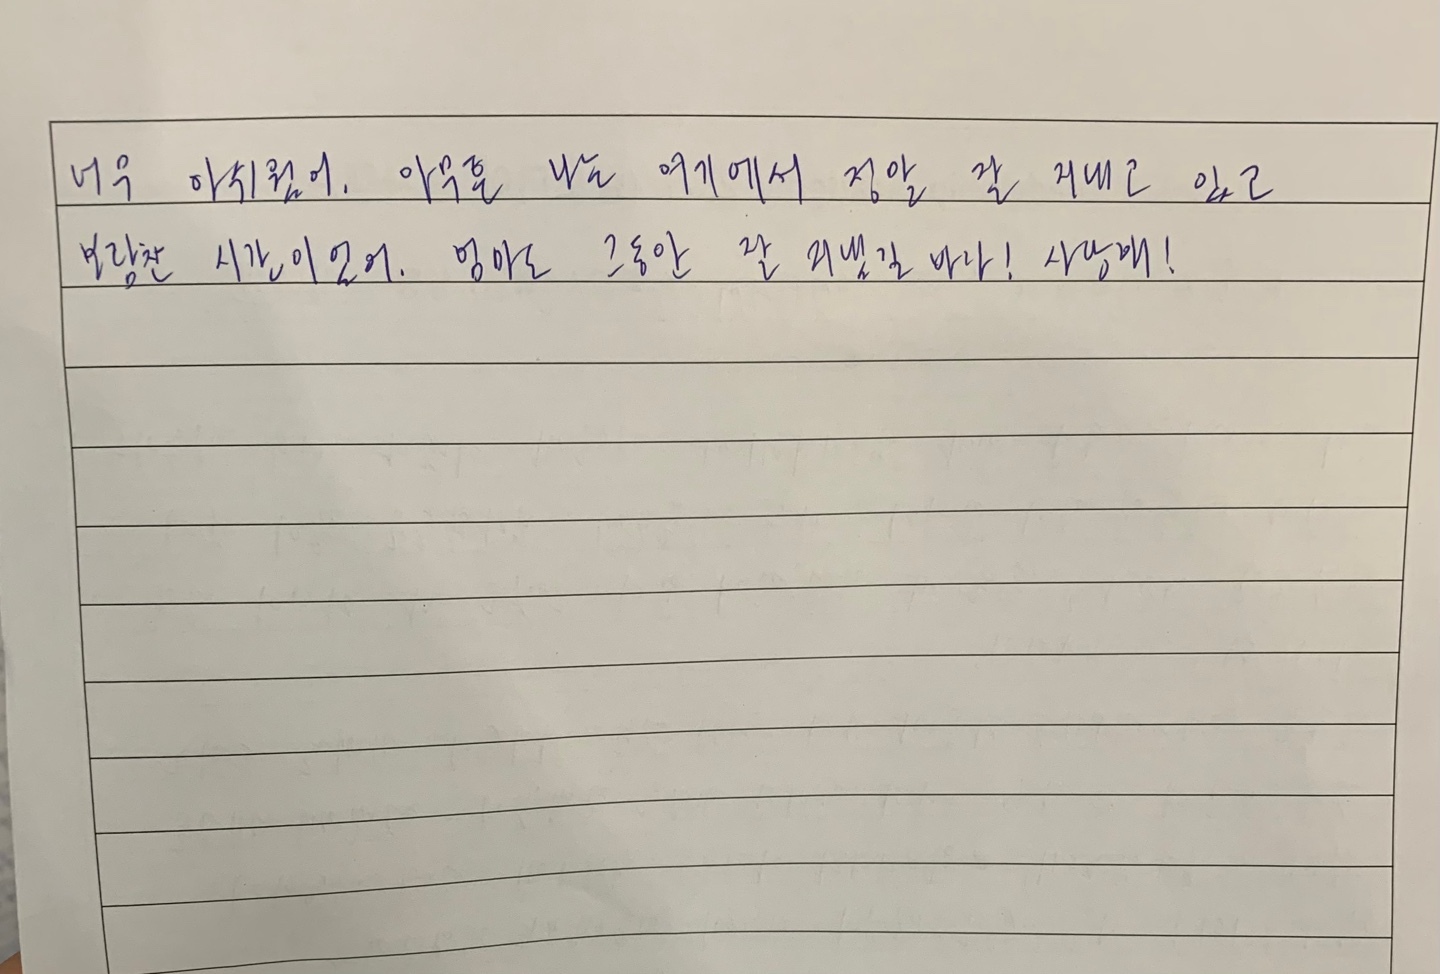 너무 아쉬웠어. 아무튼 나는 여기에서 정말 잘 지내고 있고
보람찬 시간이였어. 엄마도 그동안 잘 지냈길 바라! 사랑해!